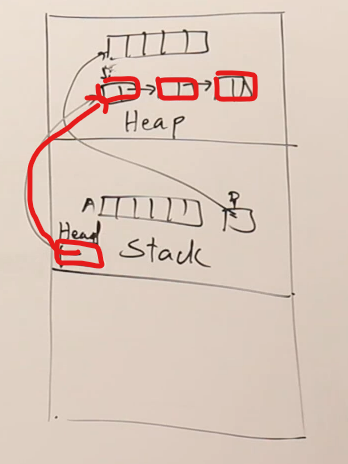 Heap
A
P
Head
Stack